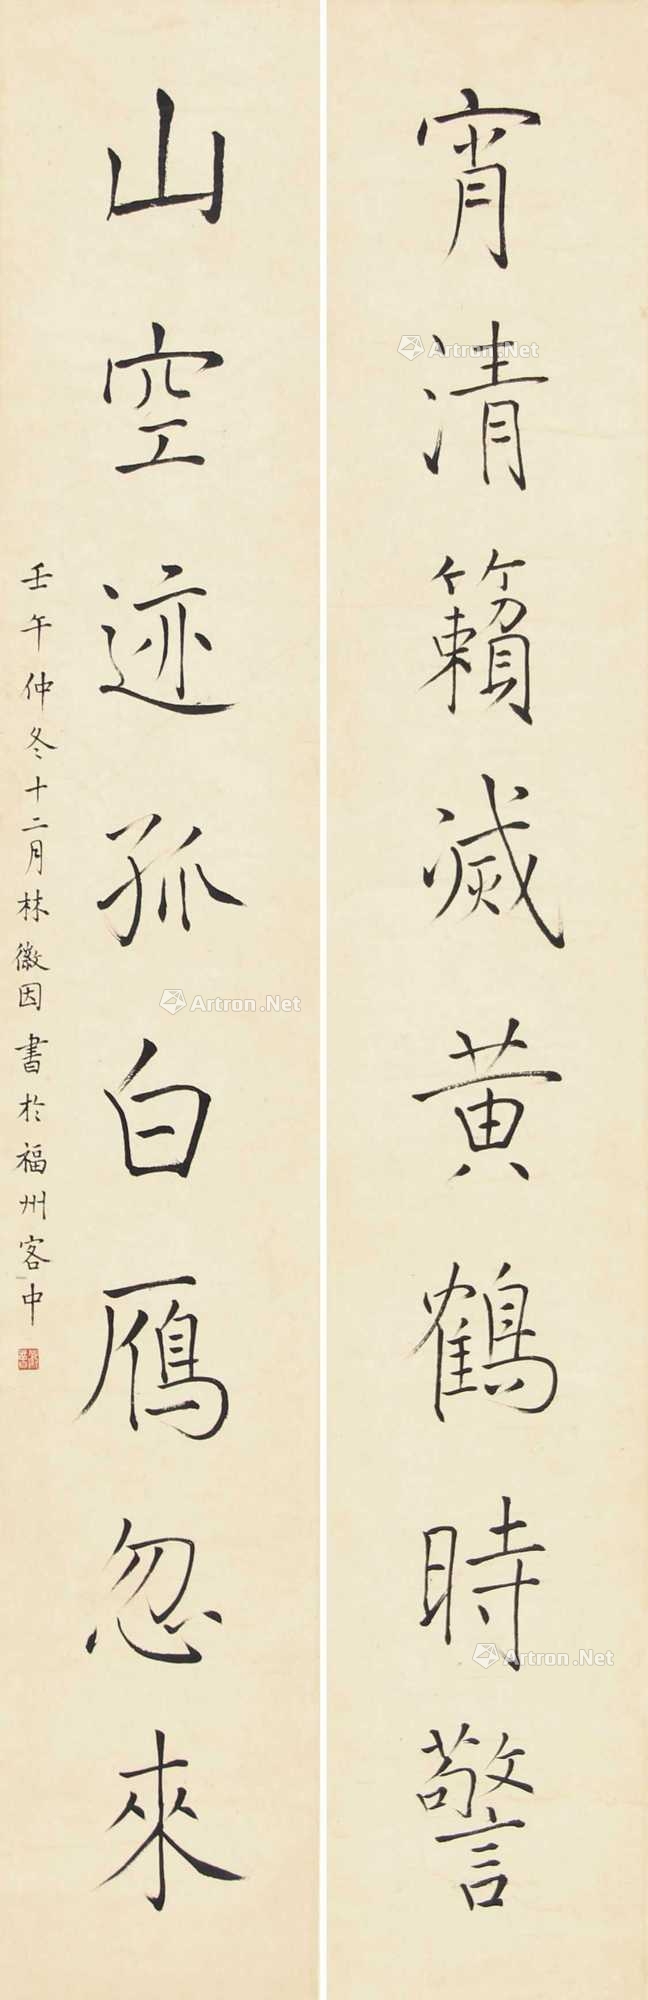 宵清籟滅黄鶴時警
山空迹孤白鴈忽來
壬午仲冬十二月林徽因書於福州客中
Artron.Net
Artron.Net
Artron.Net